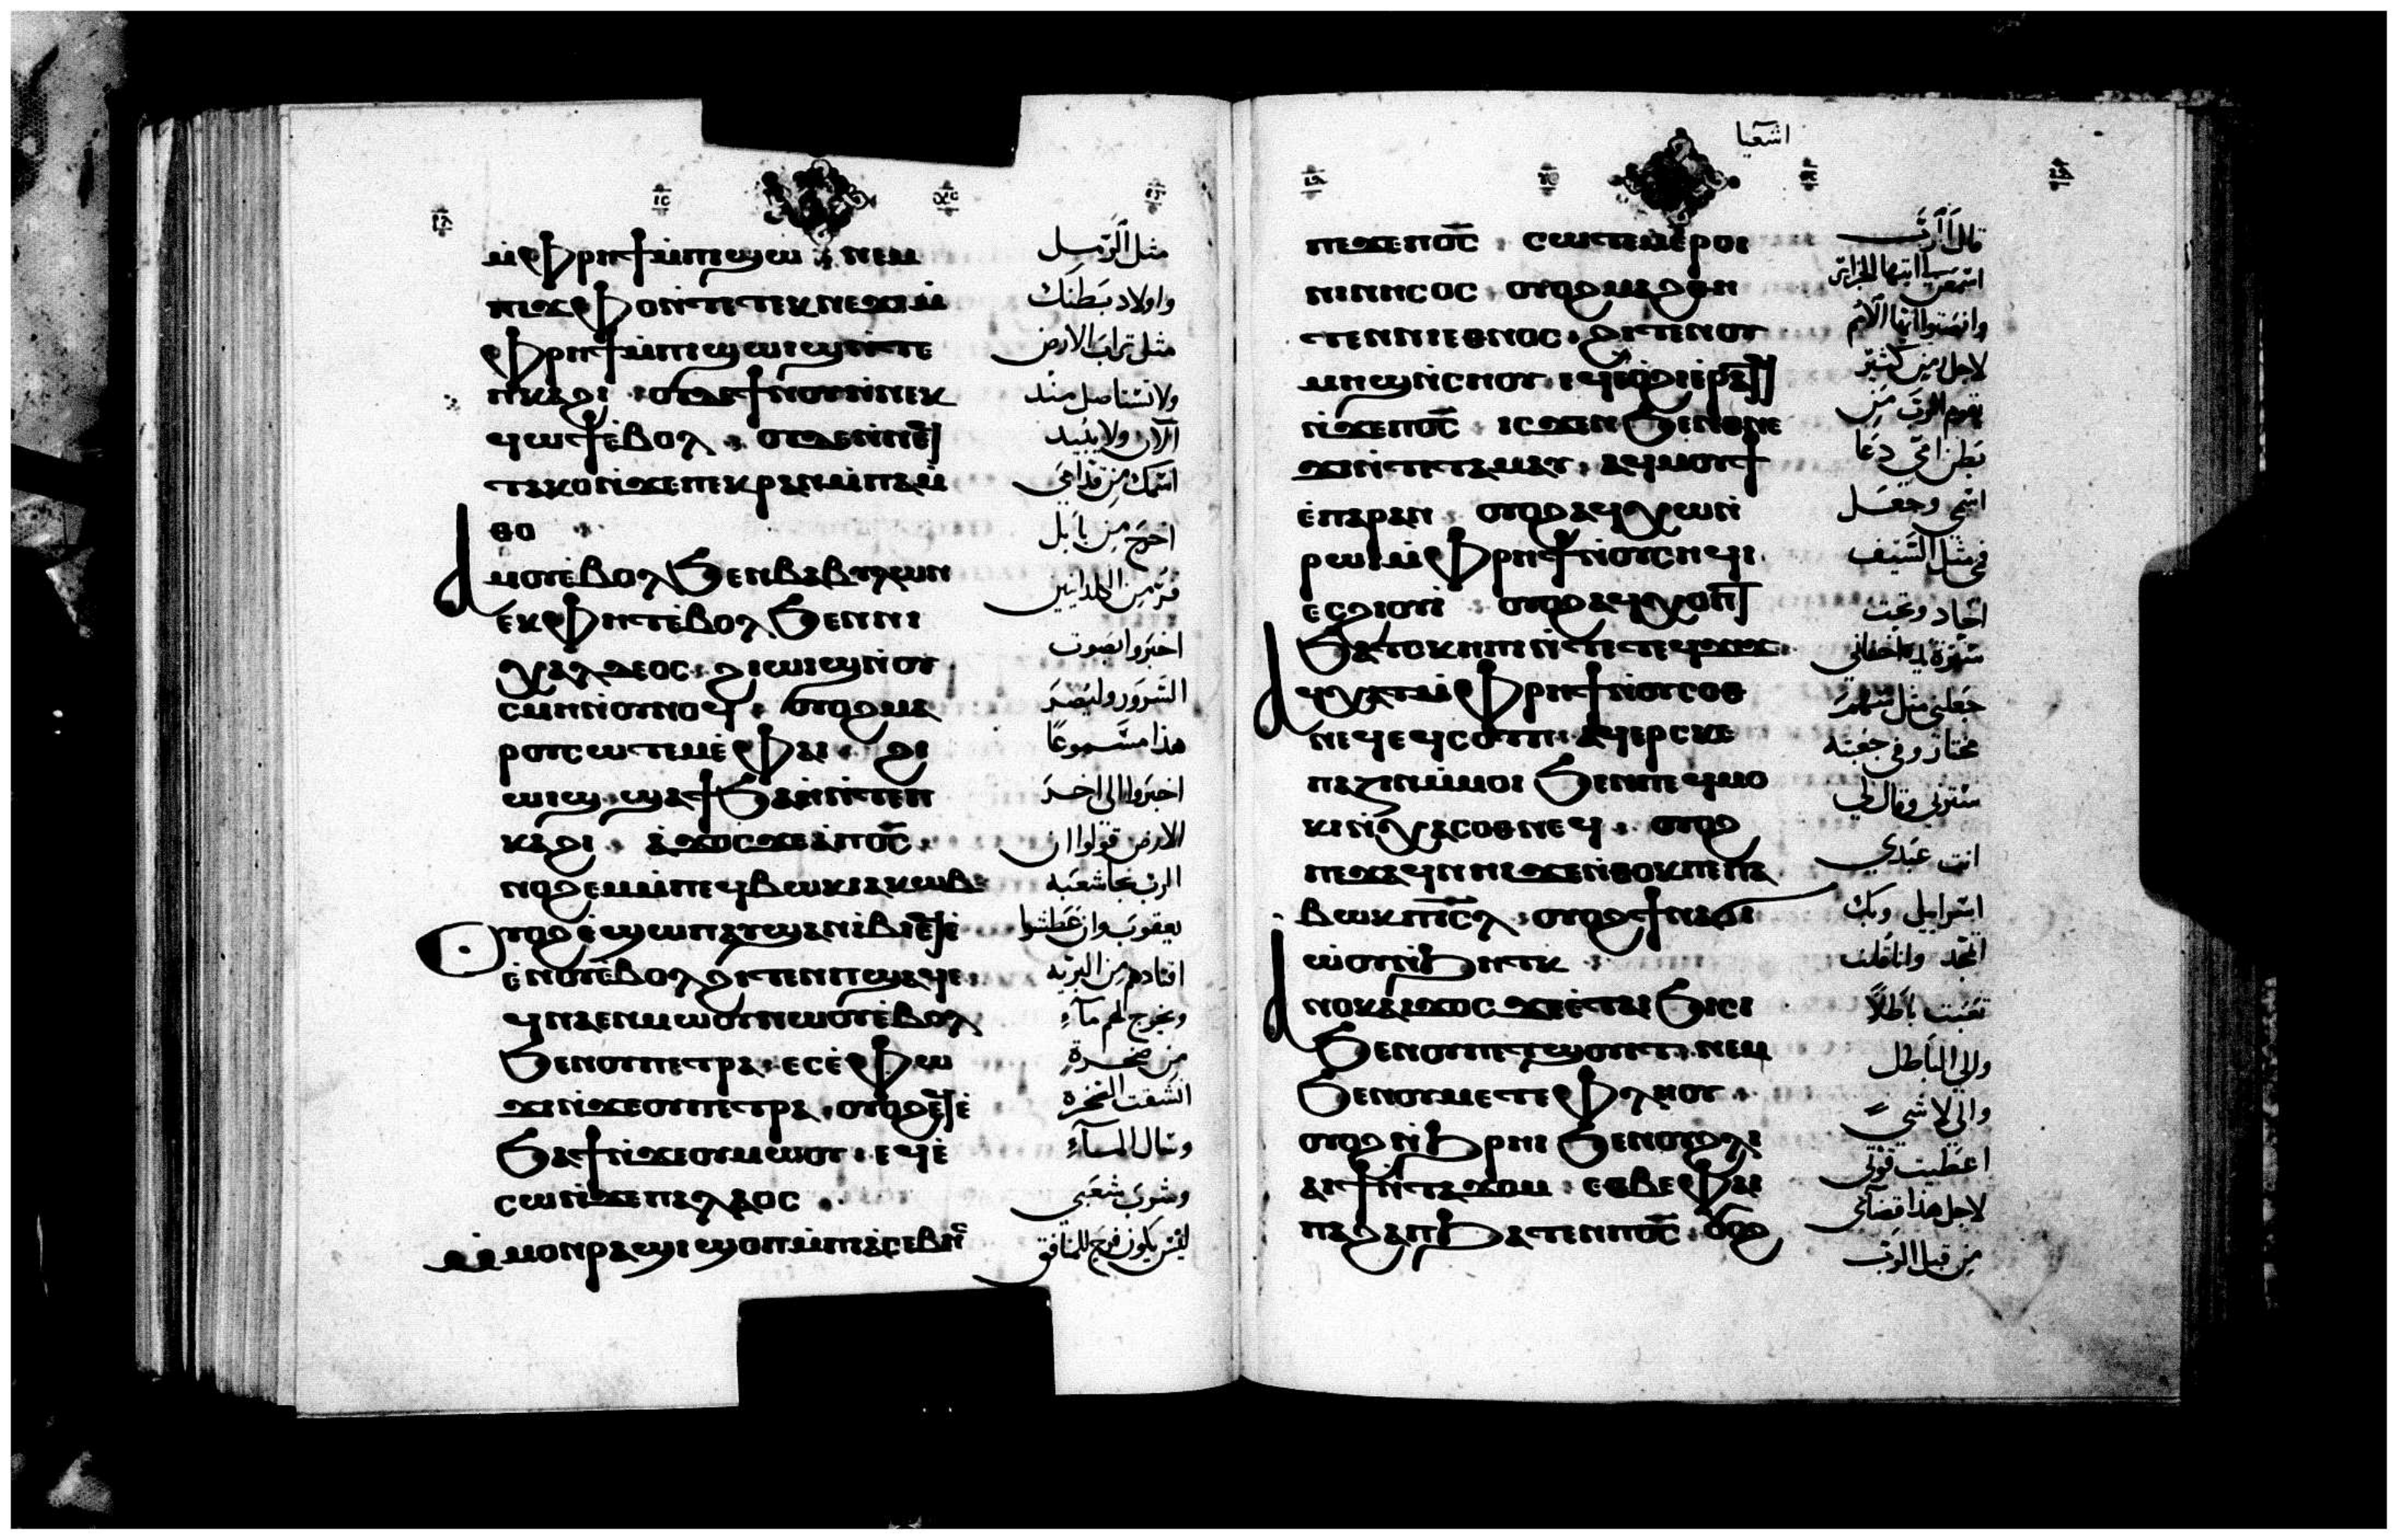 ⲙ̀ⲫⲣⲏϯⲙ̀ⲡⲓϣⲱ · ⲛⲉⲙ
ⲛⲓϫⲫⲟⲛ̀ⲧⲉⲧⲉⲕⲛⲉϫⲓⲙ̀
ⲫⲣⲏϯⲙ̀ⲡⲓϣⲱⲓϣⲛ̀ⲧⲉ
ⲡⲕⲁϩⲓ · ⲟⲩⲇⲉϯⲛⲟⲩⲛ̀ⲛⲉⲕ
ϥⲱϯⲉ̀ⲃⲟⲗ · ⲟⲩⲇⲉⲛ̀ⲛⲉϥ
ⲧⲁⲕⲟⲛ̀ϫⲉⲡⲉⲕⲣⲁⲛⲙ̀ⲡⲁⲙ̀
ⲑⲟ
ⲁⲙⲟⲩⲉ̀ⲃⲟⲗϧⲉⲛⲃⲁⲃⲩⲗⲱⲛ
ⲉⲕⲫⲏⲧⲉ̀ⲃⲟⲗϧⲉⲛⲛⲓ
ⲭⲁⲗⲇⲉⲟⲥ · ϩⲓⲱⲓϣⲛ̀ⲟⲩ
ⲥⲙⲏⲛ̀ⲟⲩⲛⲟϥ · ⲟⲩⲟϩⲙⲁ
ⲣⲟⲩⲥⲱⲧⲉⲙⲉ̀ⲫⲁⲓ · ϩⲓ
ⲱⲓϣ ϣⲁϯϧⲁⲏ̀ⲛ̀ⲧⲉⲡ
ⲕⲁϩⲓ · ⲁ̀ϫⲟⲥϫⲉⲁ̀ⲡⲟ̅ⲥ̅
ⲛⲟϩⲉⲙⲙ̀ⲡⲉϥⲃⲱⲕⲓⲁⲕⲱⲃ
ⲟⲩⲟϩⲉ̀ϣⲱⲡⲁⲩϣⲁⲛⲓ̀ⲃⲓⲉϥⲉ̀
ⲉ̀ⲛⲟⲩⲉ̀ⲃⲟⲗϩⲓⲧⲉⲛⲡϣⲁϥⲉ
ϥⲛⲁⲉⲛⲙⲱⲟⲩⲛⲱⲟⲩⲉ̀ⲃⲟⲗ
ϧⲉⲛⲟⲩⲡⲉⲧⲣⲁ · ⲉⲥⲉ̀ⲫⲱ
ϫⲓⲛ̀ϫⲉⲟⲩⲡⲉⲧⲣⲁ · ⲟⲩⲟϩⲉϥⲉ̀
ϧⲁϯⲛ̀ϫⲉⲟⲩⲙⲱⲟⲩ · ⲉϥⲉ̀
ⲥⲱⲛ̀ϫⲉⲡⲁⲗⲁⲟⲥ ·
ⲙ̀ⲙⲟⲛⲣⲁϣⲓϣⲟⲡⲙ̀ⲡⲓⲁⲥⲉⲃⲏⲥ
مثل الرمل
واولاد بطنك
مثل تراب الارض
ولا تستاصل منذ
الآن ولا يبيد
اسمك من قدامي
اخرج من بابل
فر من الكلدانيين
اخبروا بصوت
السرور وليصير
هذا مسموعا
اخبروا الى اخر
الارض قولوا ان
الرب نجا شعبه
يعقوب وان عطشوا
اقتادهم من البريه
ويخرج لهم مآء
من صخرة
انشقت الصخره
وسال المآء
وشرب شعبي
ليس يكون فرح للمنافق
اشعيا
ⲡⲉϫⲉⲡⲟ̅ⲥ̅ · ⲥⲱⲧⲉⲙⲉ̀ⲣⲟⲓ
ⲛⲓⲛⲏⲥⲟⲥ ⲟⲩⲟϩⲙⲁϩⲑⲏ
ⲧⲉⲛⲛⲓⲉⲑⲛⲟⲥ · ϩⲓⲧⲉⲛⲟⲩ
ⲙⲏϣⲛ̀ⲥⲏⲟⲩ · ⲉϥⲉ̀ⲟ̀ϩⲓⲉ̀ⲣⲁⲧϥ
ⲛ̀ϫⲉⲡⲟ̅ⲥ̅ ⲓⲥϫⲉⲛϧⲉⲛⲑⲛⲉ
ϫⲓⲛ̀ⲧⲉⲧⲁⲙⲁⲩ · ⲁϥⲙⲟⲩϯ
ⲉ̀ⲡⲁⲣⲁⲛ ⲟⲩⲟϩⲁϥⲭⲱⲛ̀
ⲣⲱⲓⲙ̀ⲫⲣⲏϯⲛ̀ⲟⲩⲥⲏϥⲓ
ⲉⲥϩⲓⲟⲩⲓ̀ · ⲟⲩⲟϩⲁϥⲭⲟⲡⲧ
ϧⲁⲧⲟⲕⲏⲡⲓⲛ̀ⲧⲉⲧⲉϥϫⲓϫ
ⲁϥⲭⲁⲧⲙ̀ⲫⲣⲏϯⲛ̀ⲟⲩⲥⲟⲑ
ⲛⲉϥⲉϥⲥⲟⲧⲡ · ⲁϥⲉⲣⲥⲕⲉ
ⲡⲁⲍⲓⲛⲙ̀ⲙⲟⲓ ϧⲉⲛⲡⲉϥⲙⲟ
ⲕⲓⲛ̀ⲭⲁⲥⲟⲑⲛⲉϥ · ⲟⲩⲟϩ
ⲡⲉϫⲁϥⲛⲏⲓϫⲉⲛ̀ⲑⲟⲕⲡⲉⲡⲁ
ⲃⲱⲕⲡⲓ̅ⲥ̅ⲗ̅ · ⲟⲩⲟϩϯⲛⲁϭⲓ
ⲱ̀ⲟⲩⲛ̀ϧⲏⲧⲕ
ⲁⲛⲟⲕⲁⲓϫⲟⲥ ϫⲉⲉ̀ⲧⲁⲓϧⲓⲥⲓ
ϧⲉⲛⲟⲩⲡⲉⲧϣⲟⲩⲓⲧ · ⲛⲉⲙ
ϧⲉⲛⲟⲩⲙⲉⲧⲉⲫⲗⲏⲟⲩ ·
ⲟⲩⲟϩⲛ̀ϧⲣⲏⲓ ϧⲉⲛⲟⲩϩⲗⲓ
ⲁⲓϯⲛ̀ⲧⲁϫⲟⲙ · ⲉⲑⲃⲉⲫⲁⲓ
ⲡⲁϩⲁⲡϧⲁⲧⲉⲛⲡⲟ̅ⲥ̅ · ⲟⲩⲟϩ
قال الرب
اسمعى ايتها الجزائر
وانصتوا ايها الامم
لاجل زمن كثير
يقوم الرب من
بطن امي دعا
اسمي وجعل
في مثل السيف
الحاد وتحت
سترة يده اخفاني
جعلني مثل سهم
مختار وفي جعبته
سترني وقال لي
انت عبدي
اسراييل وبك
اتمجد وانا قلت
تعبت باطلا
والى الباطل
والى لا شي
اعطيت قوتي
لاجل هذا قضآئي
من قبل الرب